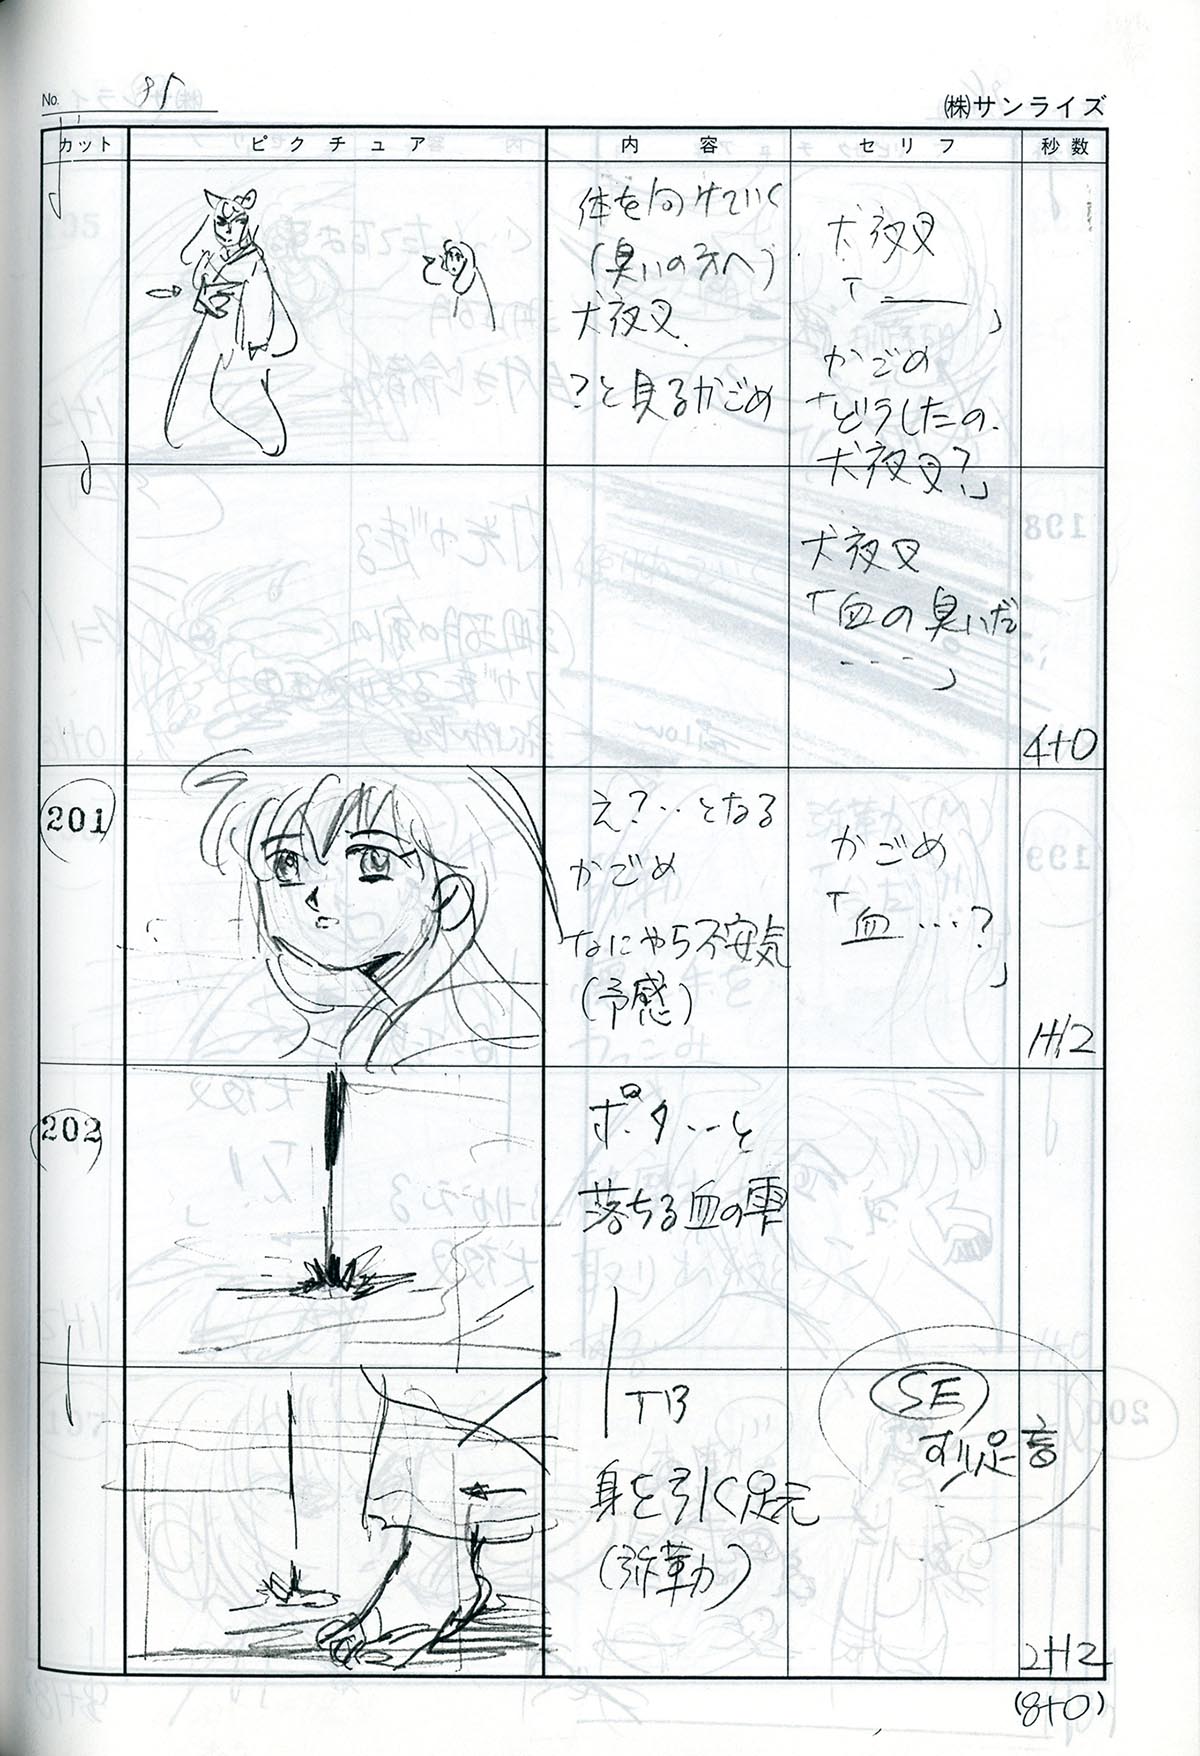 No. 85
(株)サンライズ
カット ピクチュア 内容 セリフ 秒数
体を向けていく
(臭いの方へ)
犬夜叉
?と見るかごめ
犬夜叉
「――」
かごめ
「どうしたの、
犬夜叉?」
犬夜叉
「血の臭いだ
……」
4+0
201
え?‥となる
かごめ
なにやら不安気
(予感)
かごめ
「血…?
」
1+12
202
ポタ‥と
落ちる血の雫
TB
身を引く足元
(弥勒)
SE
すり足音
2+12
(8+0)